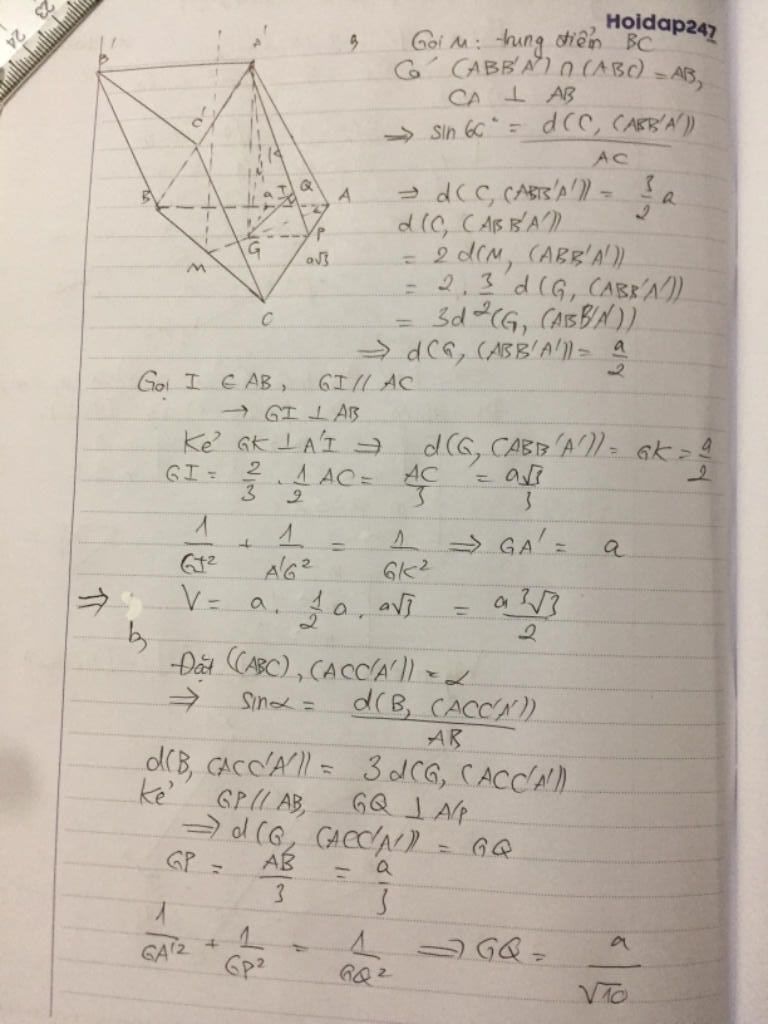 Hoidap247
a, Gọi M: trung điểm BC
Có (ABB'A') ∩ (ABC) = AB,
CA ⊥ AB
=> sin 60° = d(C, (ABB'A')) / AC
=> d(C, (ABB'A')) = 3/2 a
d(C, (ABB'A'))
= 2 d(M, (ABB'A'))
= 2 . 3/2 d(G, (ABB'A'))
= 3d(G, (ABB'A'))
=> d(G, (ABB'A')) = a/2
Gọi I ∈ AB, GI // AC
→ GI ⊥ AB
Kẻ GK ⊥ A'I => d(G, (ABB'A')) = GK = a/2
GI = 2/3 . 1/2 AC = AC/3 = a√3/3
1/GI² + 1/A'G² = 1/GK² => GA' = a
=> V = a . 1/2 a . a√3 = a³√3/2
b,
Đặt ((ABC), (ACC'A')) = α
=> sin α = d(B, (ACC'A')) / AB
d(B, (ACC'A')) = 3d(G, (ACC'A'))
Kẻ GP // AB, GQ ⊥ A'P
=> d(G, (ACC'A')) = GQ
GP = AB/3 = a/3
1/GA'² + 1/GP² = 1/GQ² => GQ = a/√10
B'
A'
C'
K
I
Q
a
B
A
G
P
M
a√3
C
23
24